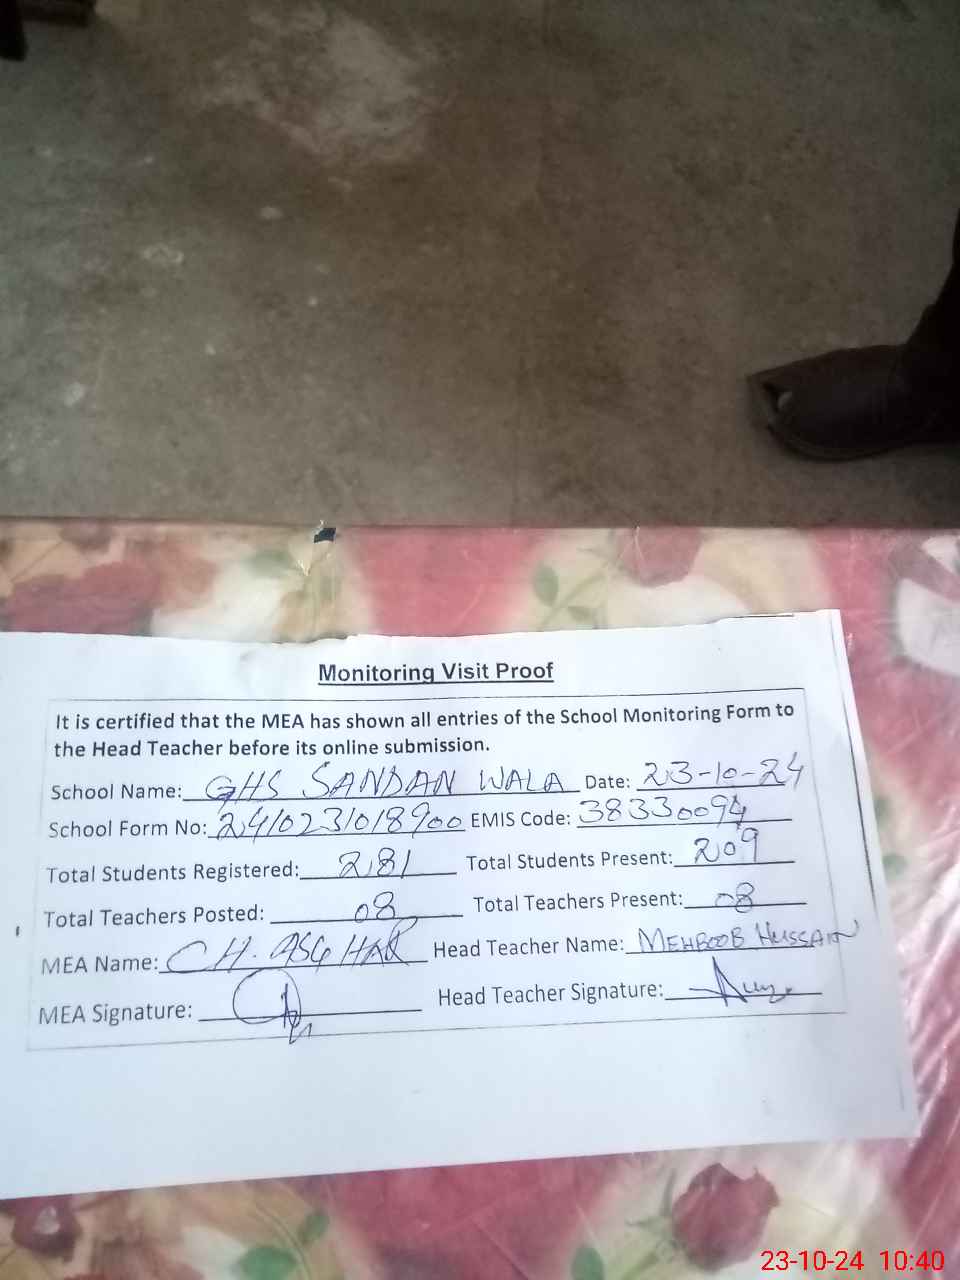 Monitoring Visit Proof
It is certified that the MEA has shown all entries of the School Monitoring Form to
the Head Teacher before its online submission.
School Name: GHS SANDAN WALA Date: 23-10-24
School Form No: 2410231018900 EMIS Code: 38330094
Total Students Registered: 281 Total Students Present: 209
Total Teachers Posted: 08 Total Teachers Present: 08
MEA Name: CH. ASGHAR Head Teacher Name: MEHBOOB HUSSAIN
MEA Signature: Head Teacher Signature:
23-10-24 10:40